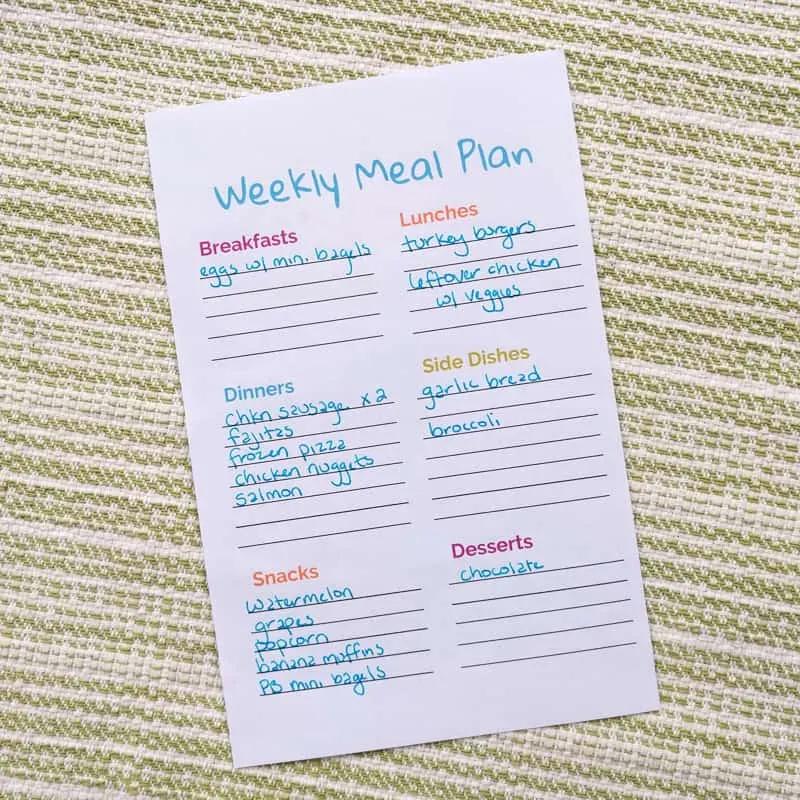 Weekly Meal Plan
Breakfasts
eggs w/ min. bagels
Lunches
turkey burgers
leftover chicken
w/ veggies
Dinners
chkn sausage x 2
fajitas
frozen pizza
chicken nuggets
salmon
Side Dishes
garlic bread
broccoli
Snacks
watermelon
grapes
popcorn
banana muffins
PB mini bagels
Desserts
chocolate